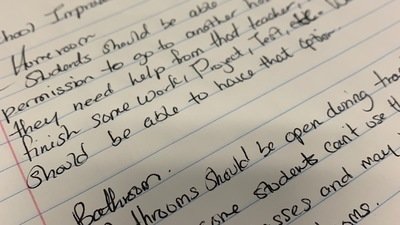 School Improve
Homeroom
- Students should be able
permission to go to another ho
they need help from that teacher,
finish some work, Project, Test, etc.
should be able to have that option.
Bathroom.
throoms should be open during tra
some students can't use th
asses and may
oms.